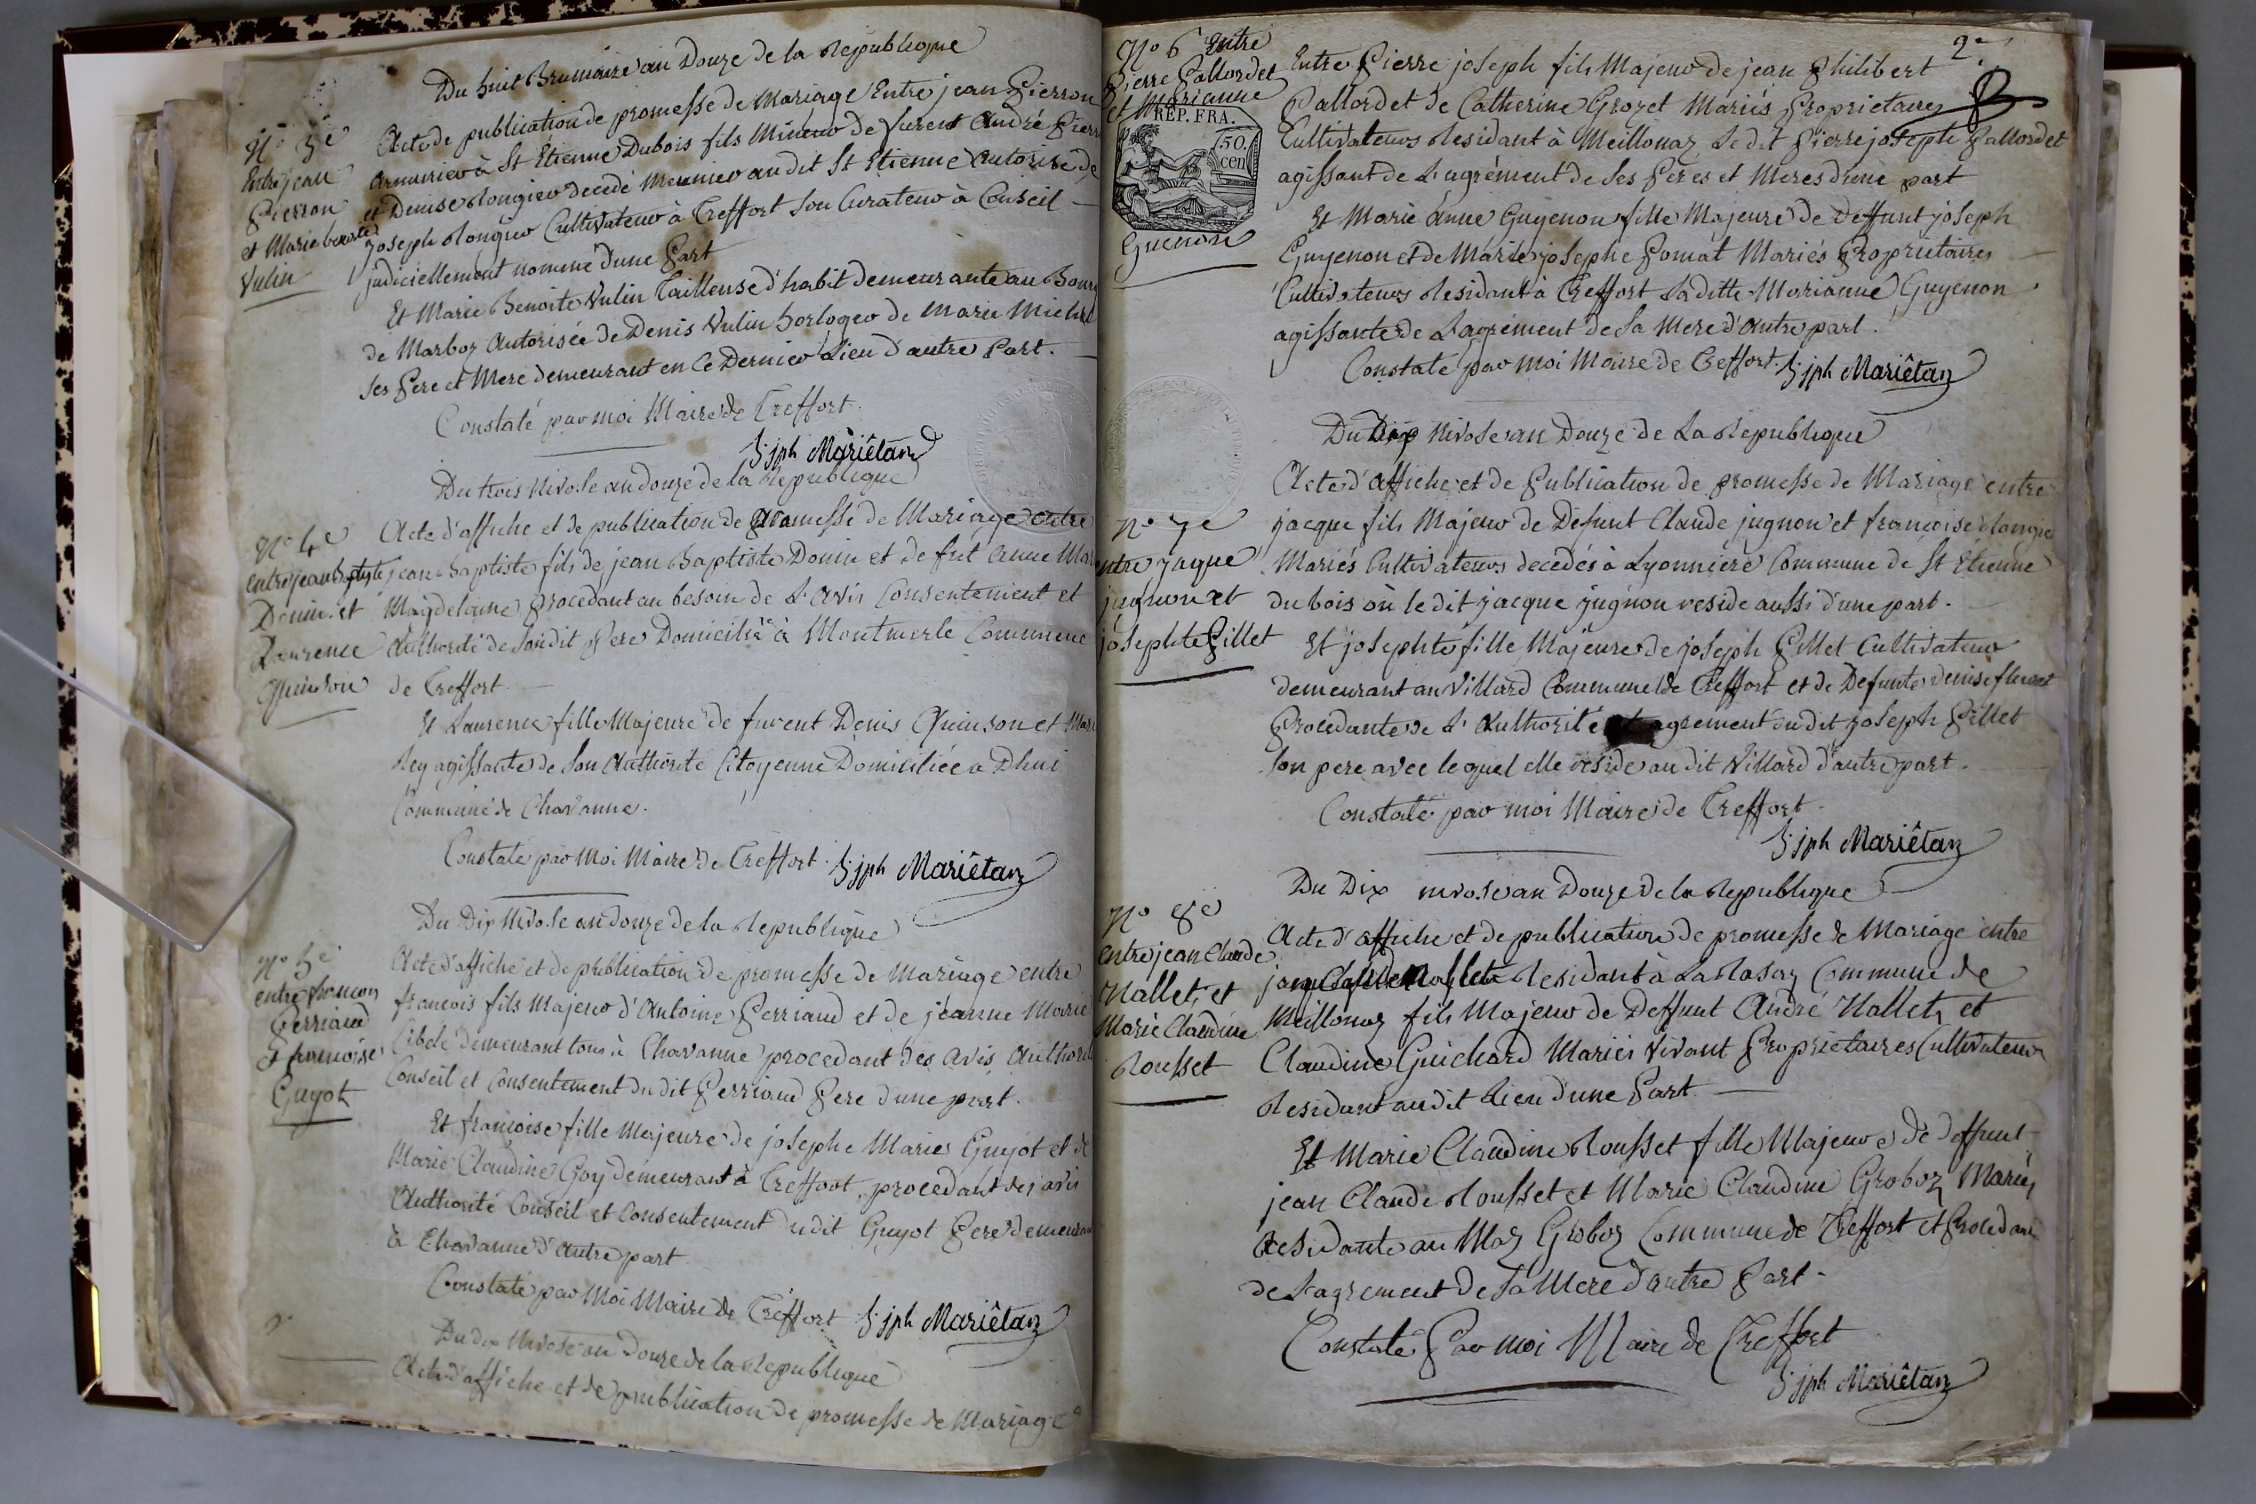 Du huit Brumaire an Douze de la Republique
N° 3e
Entre jean
Pierron
et Marie benoite
Vulin
Acte de publication de promesse de Mariage Entre jean Pierron
armurier à St Etienne Dubois fils Mineur de furent André Pierr
et Denise Rongier decedé Meunier au dit St Etienne Autorisé de
Joseph Rongier Cultivateur à Treffort son Curateur à Conseil
judiciellement nommé d'une Part
Et Marie Benoite Vulin Tailleuse d'habit demeurante au Bourg
de Marboz Autorisée de Denis Vulin horloger de Marie Michel
ses Pere et Mere demeurant en Ce Dernier Lieu d'autre Part.
Constaté par moi Maire de Treffort.
jph Mariêtan
Du trois Nivose an douze de la Republique
N° 4e
entre jean Baptiste
Donin et
Laurence
Quinson
Acte d'affiche et de publication de promesse de Mariage entre
jean-Baptiste fils de jean Baptiste Donin et de fut Anne Mar
Magdelaine procedant au besoin de L'avis Consentement et
Authorité de Son dit Pere Domicilié à Montmerle Commune
de Treffort
Et Laurence fille Majeure de furent Denis Quinson et Mari
Rey agissante de son Authorité Citoyenne Domiciliée a Dhui
Commune de Chavanne.
Constaté par Moi Maire de Treffort. jph Mariêtan
Du Dix Nivose an douze de la Republique
N° 5e
entre francois
Perriaud
et francoise
Guyot
Acte d'affiche et de publication de promesse de Mariage entre
francois fils Majeur d'Antoine Perriaud et de jeanne Marie
Cibele demeurant tous à Chavanne procedant des avis Authorité
Conseil et Consentement du dit Perriaud Pere d'une part.
Et francoise fille Majeure de josephe Maries Guyot et de
Marie Claudine Goy demeurant à Treffort, procedant des avis
Authorité Conseil et Consentement du dit Guyot Pere demeurant
à Chavanne d'autre part
Constaté par Moi Maire de Treffort jph Mariêtan
Du dix Nivose an Douze de la Republique
Acte d'affiche et de publication de promesse de Mariage
2e
N° 6 Entre
Pierre Pallordet
et Marianne
REP. FRA.
50.
cen
Guenon
Entre Pierre joseph fils Majeur de jean Philibert
Pallordet de Catherine Grozet Mariés Proprietaires
Cultivateurs Residant à Meillonaz Le dit Pierre joseph Pallordet
agissant de L'agrément de Ses Peres et Meres d'une part
Et Marie Anne Guyenon fille Majeure de Deffunt joseph
Guyenon et de Marie josephe Pomat Mariés Proprietaires
Cultivateurs Residant à Treffort Laditte Marianne Guyenon
agissante de L'agrément de Sa Mere d'autre part.
Constaté par moi Maire de Treffort. jph Mariêtan
Du Dix Nivose an Douze de La Republique
N° 7e
entre jaque
jugnon et
josephte Pillet
Acte d'affiche et de Publication de promesse de Mariage entre
jacque fils Majeur de Defunt Claude jugnon et francoise Rongier
Mariés Cultivateurs decedés à Lyonniere Commune de St Etienne
du bois où le dit jacque jugnon reside aussi d'une part.
Et josephte fille Majeure de joseph Pillet Cultivateur
demeurant au Villard Commune de Treffort et de Defunte denise florent
Procedante de L'Authorité agrement du dit joseph Pillet
Son pere avec lequel elle reside au dit Villard d'autre part.
Constaté par moi Maire de Treffort.
jph Mariêtan
Du Dix nivose an Douze de la Republique
N° 8e
entre jean Claude
Nallet, et
Marie Claudine
Rousset
Acte d'affiche et de publication de promesse de Mariage entre
jean Claude Nallet Residant à La Rasaz Commune de
Meillonaz fils Majeur de Deffunt André Nallet, et
Claudine Guichard Mariés Vivant Proprietaires Cultivateurs
Residant au dit Lieu d'une Part.
Et Marie Claudine Rousset fille Majeure de deffunt
jean Claude Rousset et Marie Claudine Groboz Mariés
Residante au Maz Groboz Commune de Treffort et Procedant
de L'agrement de Sa Mere d'autre Part.
Constaté Par moi Maire de Treffort
jph Mariêtan